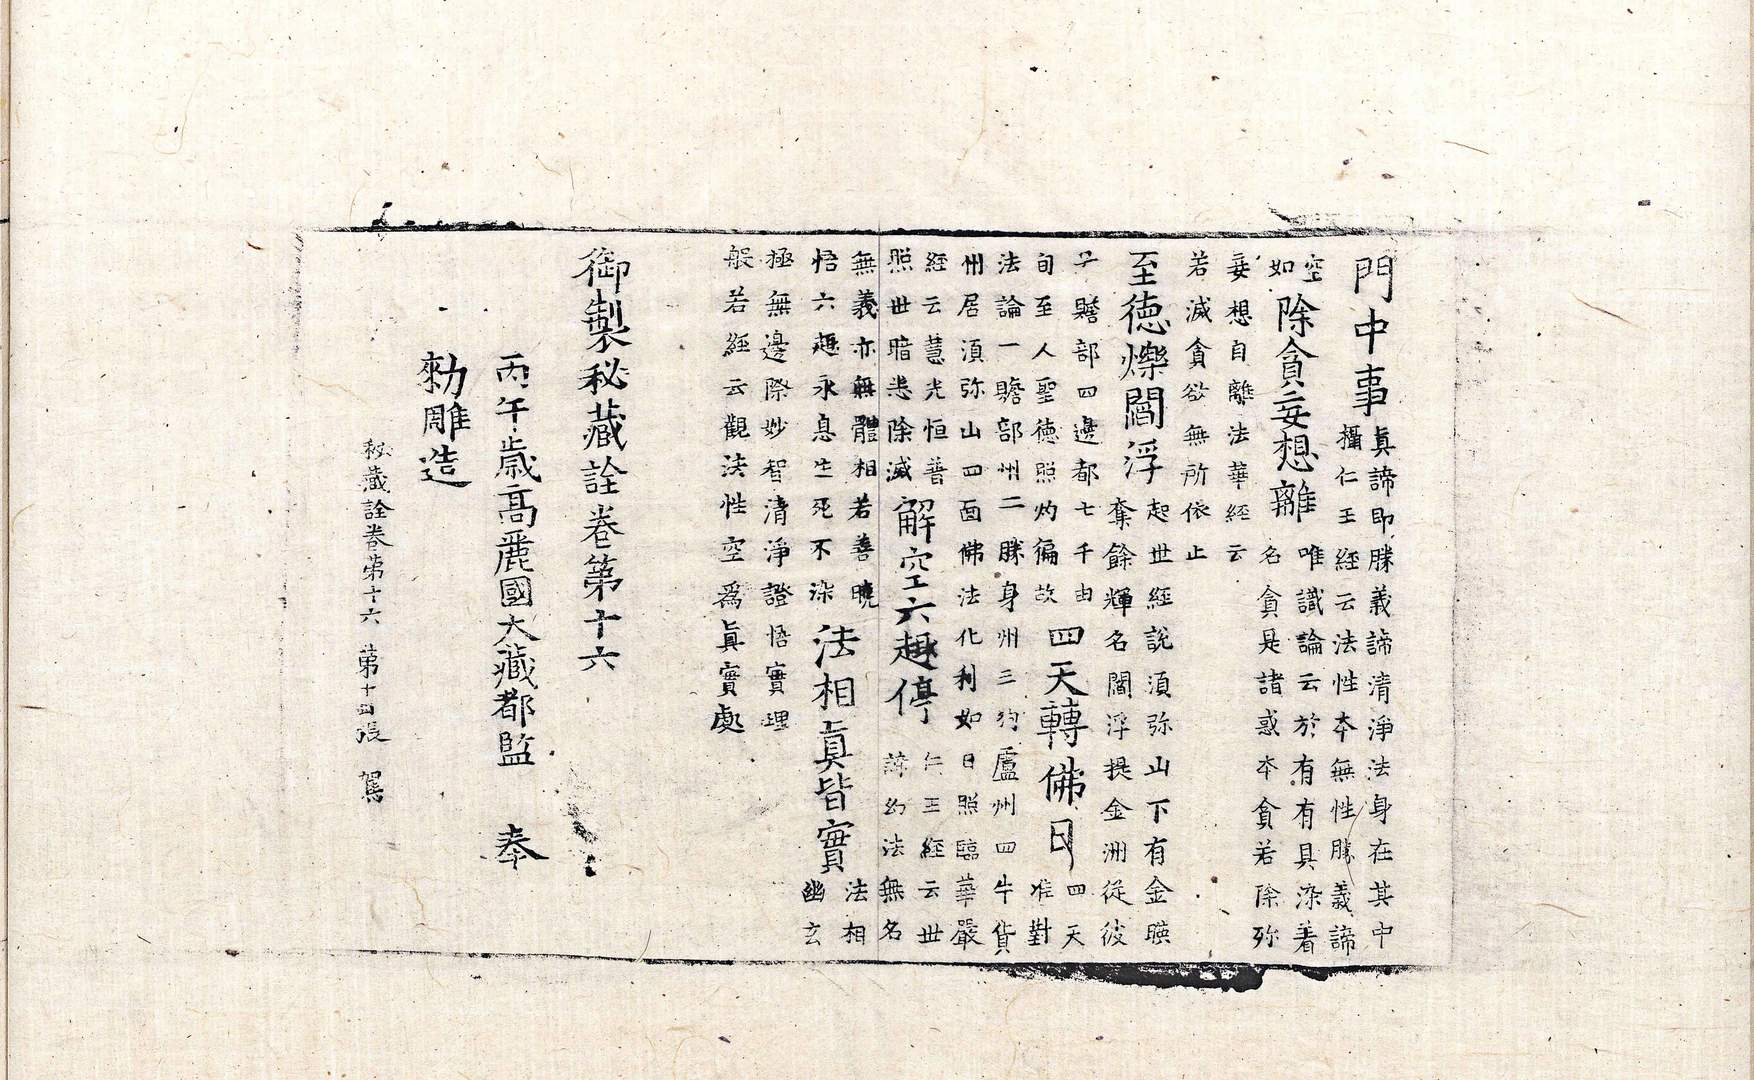 門中事真諦即勝義諦清淨法身在其中
攝仁王經云法性本無性勝義諦
空
如除貪妄想離唯識論云於有有具染着
名貪是諸惑本貪若除殄
妄想自離法華經云
若滅貪欲無所依止
至德爍閻浮起世經說須弥山下有金暎
奪餘輝名閻浮提金洲從彼
子贍部四邊都七千由
旬至人聖德照灼徧故四天轉佛日四天
准對
法論一贍部州二勝身州三狗盧州四牛貨
州居須弥山四面佛法化利如日照臨華嚴
經云慧光恒普
照世暗悉除滅解空六趣停仁王經云世
諦幻法無名
無義亦無體相若善曉
悟六趣永息生死不染法相真皆實法相
幽玄
極無邊際妙智清淨證悟實理
般若經云觀法性空爲真實處
御製秘藏詮卷第十六
丙午歲高麗國大藏都監奉
勑雕造
秘藏詮卷第十六 第十四張 駕